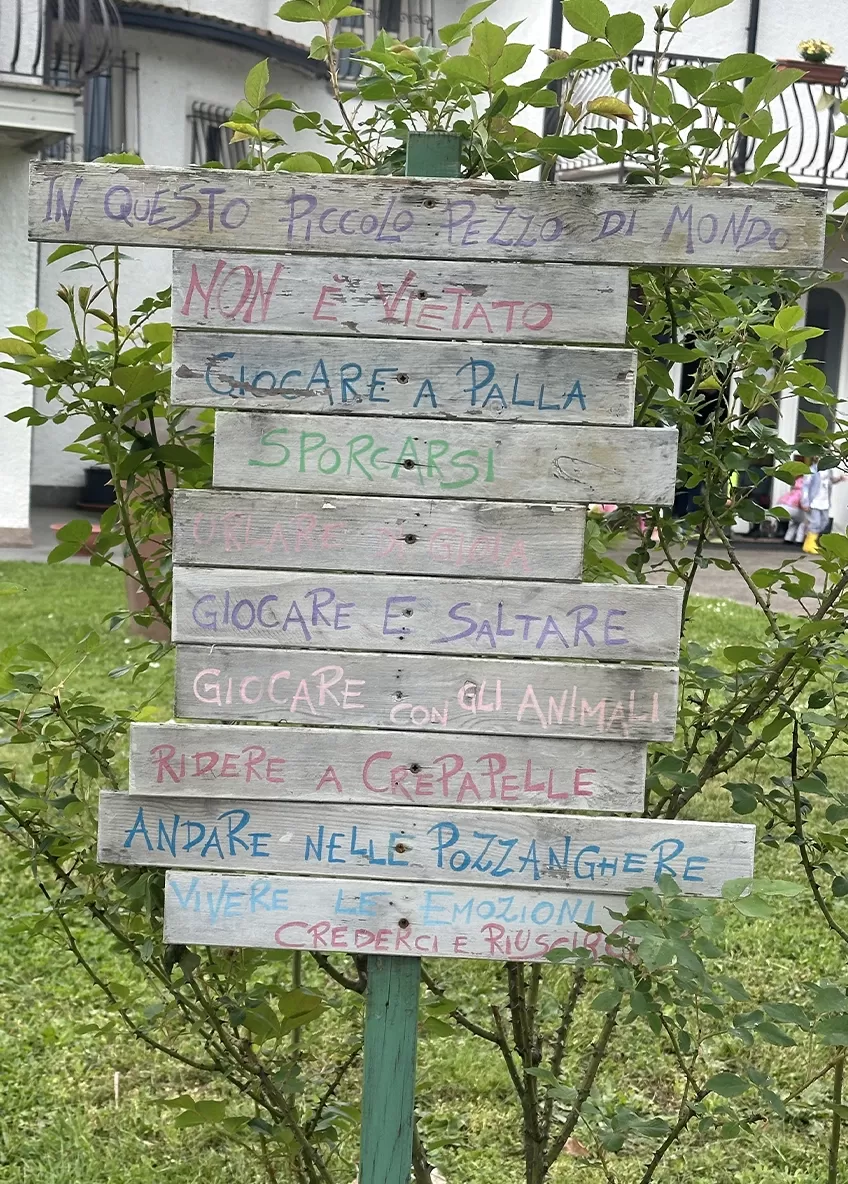 IN QUESTO PICCOLO PEZZO DI MONDO
NON È VIETATO
GIOCARE A PALLA
SPORCARSI
URLARE DI GIOIA
GIOCARE E SALTARE
GIOCARE CON GLI ANIMALI
RIDERE A CREPAPELLE
ANDARE NELLE POZZANGHERE
VIVERE LE EMOZIONI
CREDERCI E RIUSCIRCI